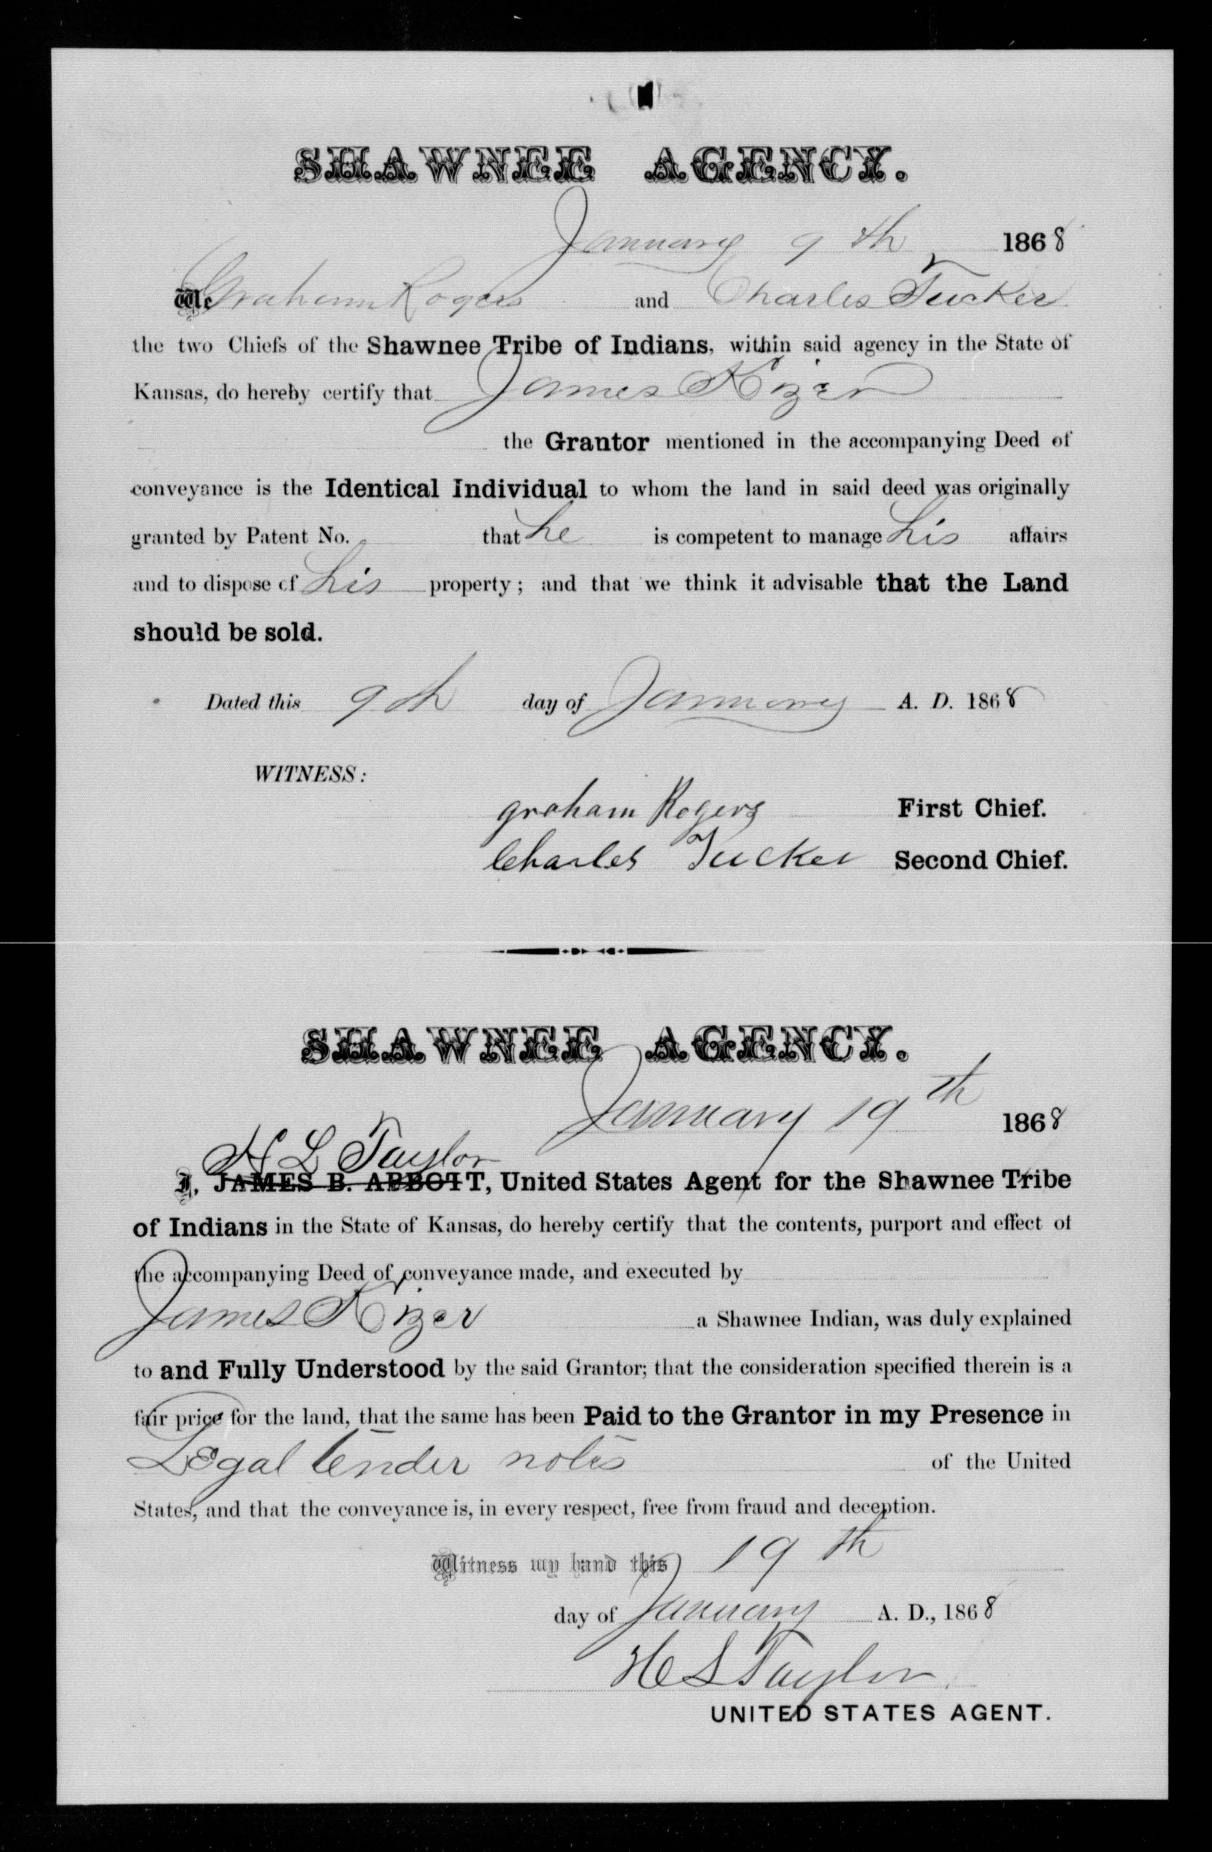 SHAWNEE AGENCY.
January 9th 1868
We Graham Rogers and Charles Tucker
the two Chiefs of the Shawnee Tribe of Indians, within said agency in the State of
Kansas, do hereby certify that James Kizer
the Grantor mentioned in the accompanying Deed of
conveyance is the Identical Individual to whom the land in said deed was originally
granted by Patent No. that he is competent to manage his affairs
and to dispose of his property; and that we think it advisable that the Land
should be sold.
Dated this 9th day of January A. D. 1868
WITNESS:
graham Rogers First Chief.
Charles Tucker Second Chief.
SHAWNEE AGENCY.
January 19th 1868
H L Taylor
I, JAMES B. ABBOTT, United States Agent for the Shawnee Tribe
of Indians in the State of Kansas, do hereby certify that the contents, purport and effect of
the accompanying Deed of conveyance made, and executed by
James Kizer a Shawnee Indian, was duly explained
to and Fully Understood by the said Grantor; that the consideration specified therein is a
fair price for the land, that the same has been Paid to the Grantor in my Presence in
Legal tender notes of the United
States, and that the conveyance is, in every respect, free from fraud and deception.
Witness my hand this 19th
day of January A. D., 1868
H L Taylor
UNITED STATES AGENT.